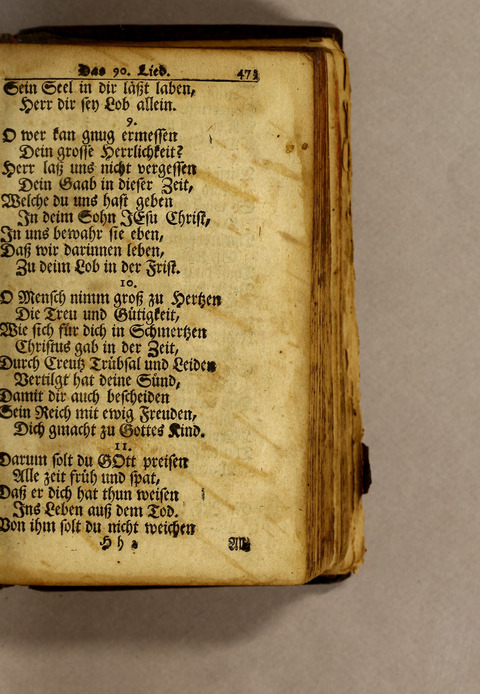 Das 90. Lied. 473
Sein Seel in dir läßt laben,
Herr dir sey Lob allein.
9.
O wer kan gnug ermessen
Dein grosse Herrlichkeit?
Herr laß uns nicht vergessen
Dein Gaab in dieser Zeit,
Welche du uns hast geben
In deim Sohn JEsu Christ,
In uns bewahr sie eben,
Daß wir darinnen leben,
Zu deim Lob in der Frist.
10.
O Mensch nimm groß zu Hertzen
Die Treu und Gütigkeit,
Wie sich für dich in Schmertzen
Christus gab in der Zeit,
Durch Creutz Trübsal und Leiden
Vertilgt hat deine Sünd,
Damit dir auch bescheiden
Sein Reich mit ewig Freuden,
Dich gmacht zu Gottes Kind.
11.
Darum solt du GOtt preisen
Alle zeit früh und spat,
Daß er dich hat thun weisen
Ins Leben auß dem Tod.
Von ihm solt du nicht weichen
H h